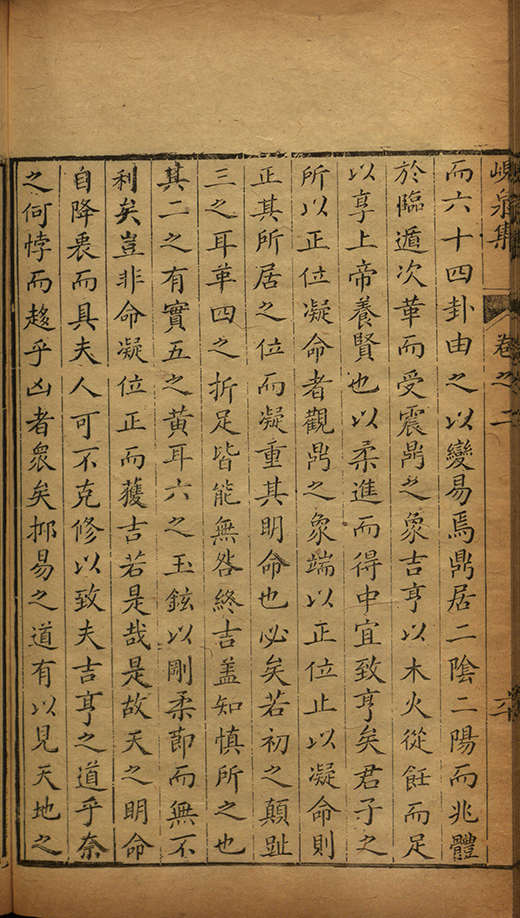 峴泉集 卷之二 六
而六十四卦由之以變易焉鼎居二陰二陽而兆體
於臨遁次革而受震鼎之象吉亨以木火從飪而足
以亨上帝養賢也以柔進而得中宜致亨矣君子之
所以正位凝命者觀鼎之象端以正位止以凝命則
正其所居之位而凝重其明命也必矣若初之顛趾
三之耳革四之折足皆能無咎終吉盖知慎所之也
其二之有實五之黃耳六之玉鉉以剛柔節而無不
利矣豈非命凝位正而獲吉若是哉是故天之明命
自降衷而具夫人可不克修以致夫吉亨之道乎奈
之何悖而趍乎凶者衆矣抑易之道有以見天地之